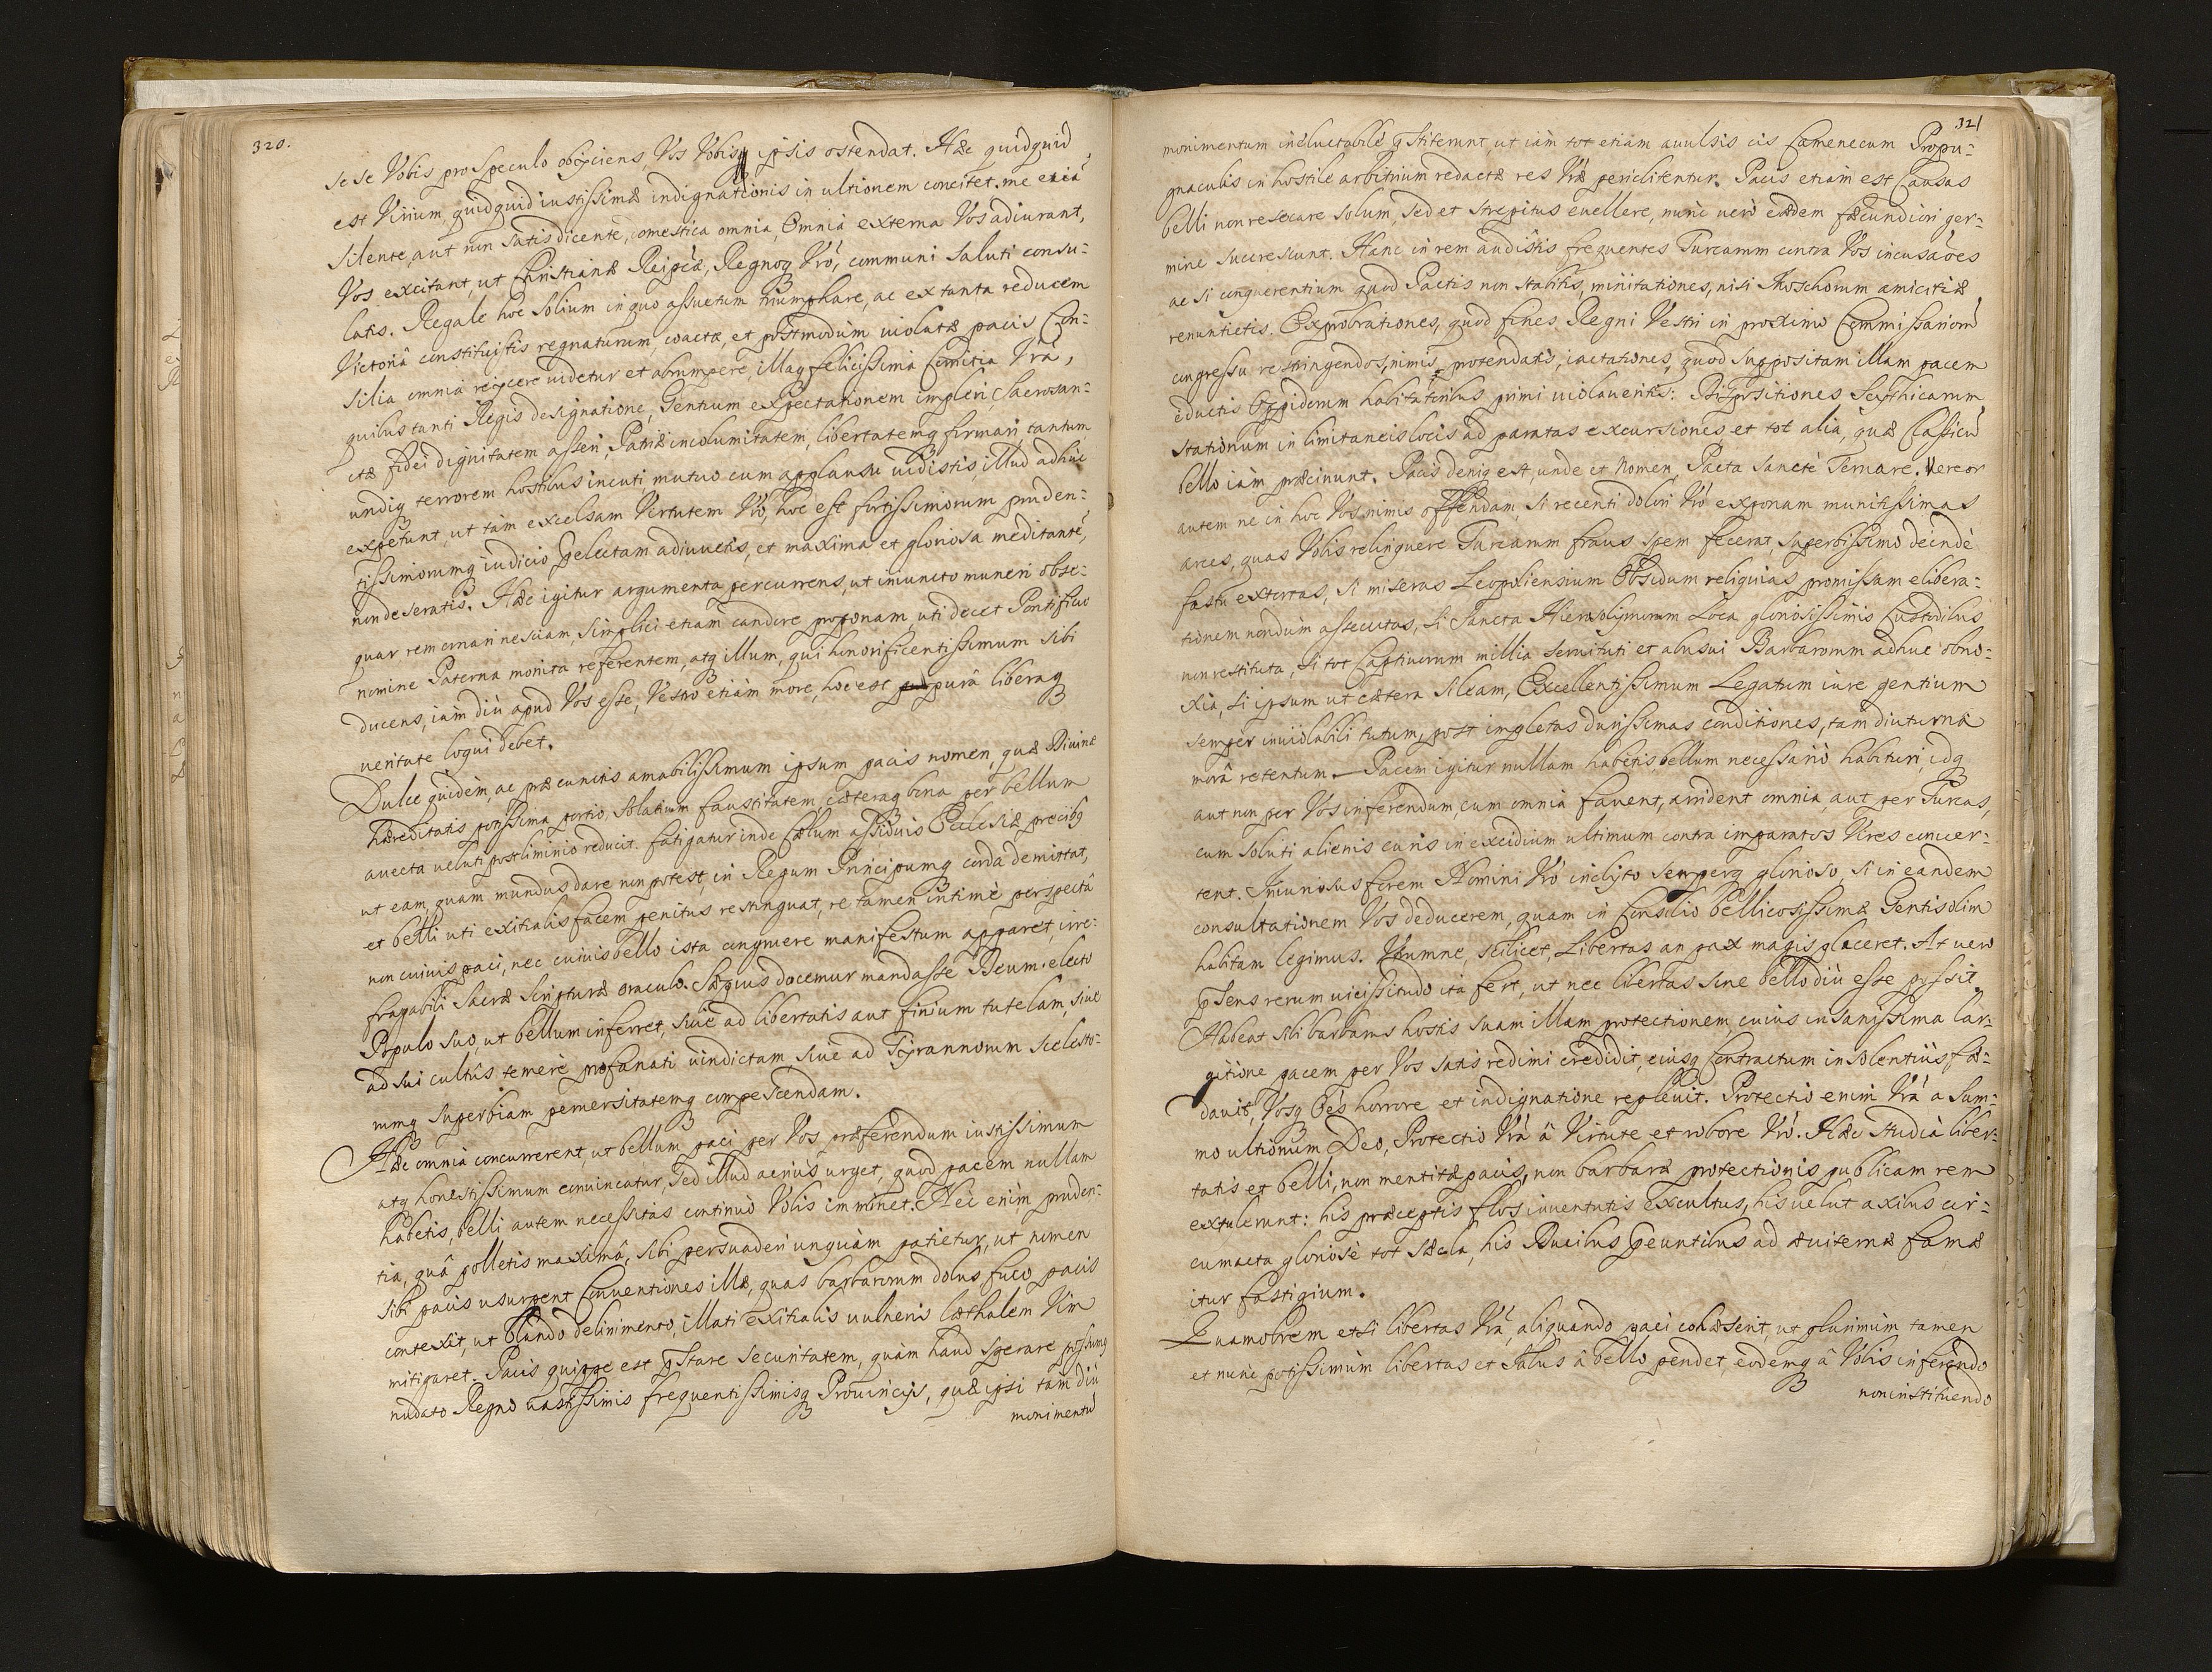 320.
se se Vobis pro speculo obijciens, Vos Vobisq ipsis ostendat. Hæc quidquid
est Virium, quidquid iustissimæ indignationis in ultionem concitet, me etiã
silente, aut non satis dicente, domestica omnia, Omnia externa Vos adiurant,
Vos excitant, ut Christianæ Reipcæ, Regnoq Vrõ, communi saluti consu-
latis. Regale hoc Solium in quo assuetum triumphare, ac ex tanta reducem
Victoriâ constituistis regnaturum, coactæ, et postmodùm uiolatæ pacis Con-
silia omnia reijcere uidetur et abrumpere, illaq felicissima Comitia Vrã,
quibus tanti Regis designatione, Gentium expectationem impleri, Sacrosan-
ctæ fidei dignitatem asseri, Patriæ incolumitatem, libertatemq firmari, tantum
undiq terrorem hostibus incuti, mutuo cum applausu uidistis, illud adhuc
expetunt, ut tàm excelsam Virtutem Vrõ, hoc est fortissimorum pruden-
tissimorumq iudicio prælectam adiuuetis, et maxima et gloriosa meditantẽ,
non deseratis. Hæc igitur argumenta percurrens, ut iniuncto muneri obse-
quar rem ornari nesciam, simplici etiam candore proponam, uti decet Pontificio
nomine Paterna monita referentem, atq illum, qui honorificentissimum sibi
ducens, iàm diù apud Vos esse, Vestro etiàm more, hoc est purâ liberaq
ueritate loqui debet.
Dulce quidèm, ac præ cunctis amabilissimum ipsum pacis nomen, quæ Diuinæ
hæreditatis potissima portio, solatium faustitatem, cæteraq bona per bellum
auecta ueluti postliminio reducit. Fatigatur inde Cælum assiduis Ecclesiæ precibq
ut eam, quam mundus dare non potest, in Regum Principumq corda demittat,
et belli uti exitialis facem penitus restinguat, re tamen intimè perspectâ
non cuiuis paci, nec cuiuis bello ista congruere manifestum apparet, irre-
fragabili Sacræ Scripturæ oraculo. Sæpius docemur mandasse Deum electo
Populo suo, ut bellum inferret, siue ad libertatis aut finium tutelam, siue
ad sui cultûs temerè profanati uindictam, siue ad Tyrannorum scelesto-
rumq superbiam peruersitatemq compescendam.
Hæc omnia concurrerent, ut bellum paci per Vos præferendum iustissimum
atq honestissimum conuincatur, sed illud acriùs urget, quod pacem nullam
habetis, belli autem necessitas continuò Vobis imminet. Nec enim pruden-
tia, quâ polletis maximâ, sibi persuaderi unquàm patietur, ut nomen
sibi pacis usurpent Conuentiones illæ, quas barbarorum dolus fuco pacis
contexit, ut blando delinimento, illati exitialis uulneris læthalem Vim
mitigaret. Pacis quippe est præstare securitatem, quàm haud sperare possumq
nudato Regno uastissimis frequentissimisq Prouincijs, quæ ipsi tam diù
monimentũ
321
monimentum ineluctabile præstiterunt, ut iàm tot etiam auulsis cis Camenecum Propu-
gnaculis in hostile arbitrium redactæ res Vræ periclitentur. Pacis etiam est Causas
belli non resecare solum, sed et strepitus euellere, nunc uerò eædem fæcundiori ger-
mine succrescunt. Hanc in rem audistis frequentes Turcarum contra Vos incusaões
ac si conquerentium quod Pactis non stabitis, minitationes, nisi Moschorum amicitiæ
renuntietis. Exprobrationes, quod fines Regni Vestri in proximo Commissariorũ
congressu restringendos, nimis protendatis, iactationes, quod suppositam illam pacem
eductis Oppidorum habitatoribus primi uiolaueritis: Dispositiones Scythicarum
stationum in limitaneis locis ad paratas excursiones, et tot alia, quæ Classicũ
bello iàm præcinunt. Pacis deniq est, unde et Nomen, Pacta Sanctè seruare. Vereor
autem ne in hoc Vos nimis offendam, si recenti dolori Vrõ exponam munitissimas
arces, quas Vobis relinquere Turcarum fraus spem fecerat, superbissimo deinde
fastu extortas, si miseras Leopoliensium Obsidum reliquias promissam elibera-
tionem nondùm assecutas, si Sancta Hierosolymorum Loca gloriosissimis Custodibus
non restituta, si tot Captiuorum millia seruituti et abusui Barbarorum adhuc obno-
xia, si ipsum ut cætera sileam, Excellentissimum Legatum iure gentium
semper inuiolabili tutum, post impletas durissimas conditiones, tam diuturnâ
morâ retentum. Pacem igitur nullam habetis, bellum necessariò habituri, idq
aut non per Vos inferendum, cum omnia fauent, arrident omnia, aut per Turcas,
cum soluti alienis curis in excidium ultimum contra imparatos Vires conuer-
tent. Iniuriosus forem Nomini Vrõ inclyto semperq glorioso, si in eandem
consultationem Vos deducerem, quam in Consilio bellicosissimæ Gentis olim
habitam legimus. Vtrumne, scilicet, Libertas an pax magis placeret. At uero
præsens rerum uicissitudo ita fert, ut nec libertas sine bello diù esse possit.
Habeat sibi barbarus hostis suam illam protectionem, cuius insanissima lar-
gitione pacem per Vos satis redimi credidit, eiusq Contractum insolentiùs fæ-
dauit, Vosq Oẽs horrore et indignatione repleuit. Protectio enim Vrã a Sum-
mo ultionum Deo, Protectio Vrã â Virtute et robore Vrõ. Hæc studia liber-
tatis et belli, non mentitæ pacis, non barbaræ protectionis publicam rem
extulerunt: his præceptis flos iuuentutis excultus, his uelut axibus cir-
cumacta gloriosè tot sæcla, his Ducibus præeuntibus ad æuiternæ famæ
itur fastigium.
Quamobrem etsi libertas Vrã, aliquando paci cohæserit, ut plurimùm tamen
et nunc potissimùm libertas et Salus â bello pendet eodemq â Vobis inferendo
non instituendo